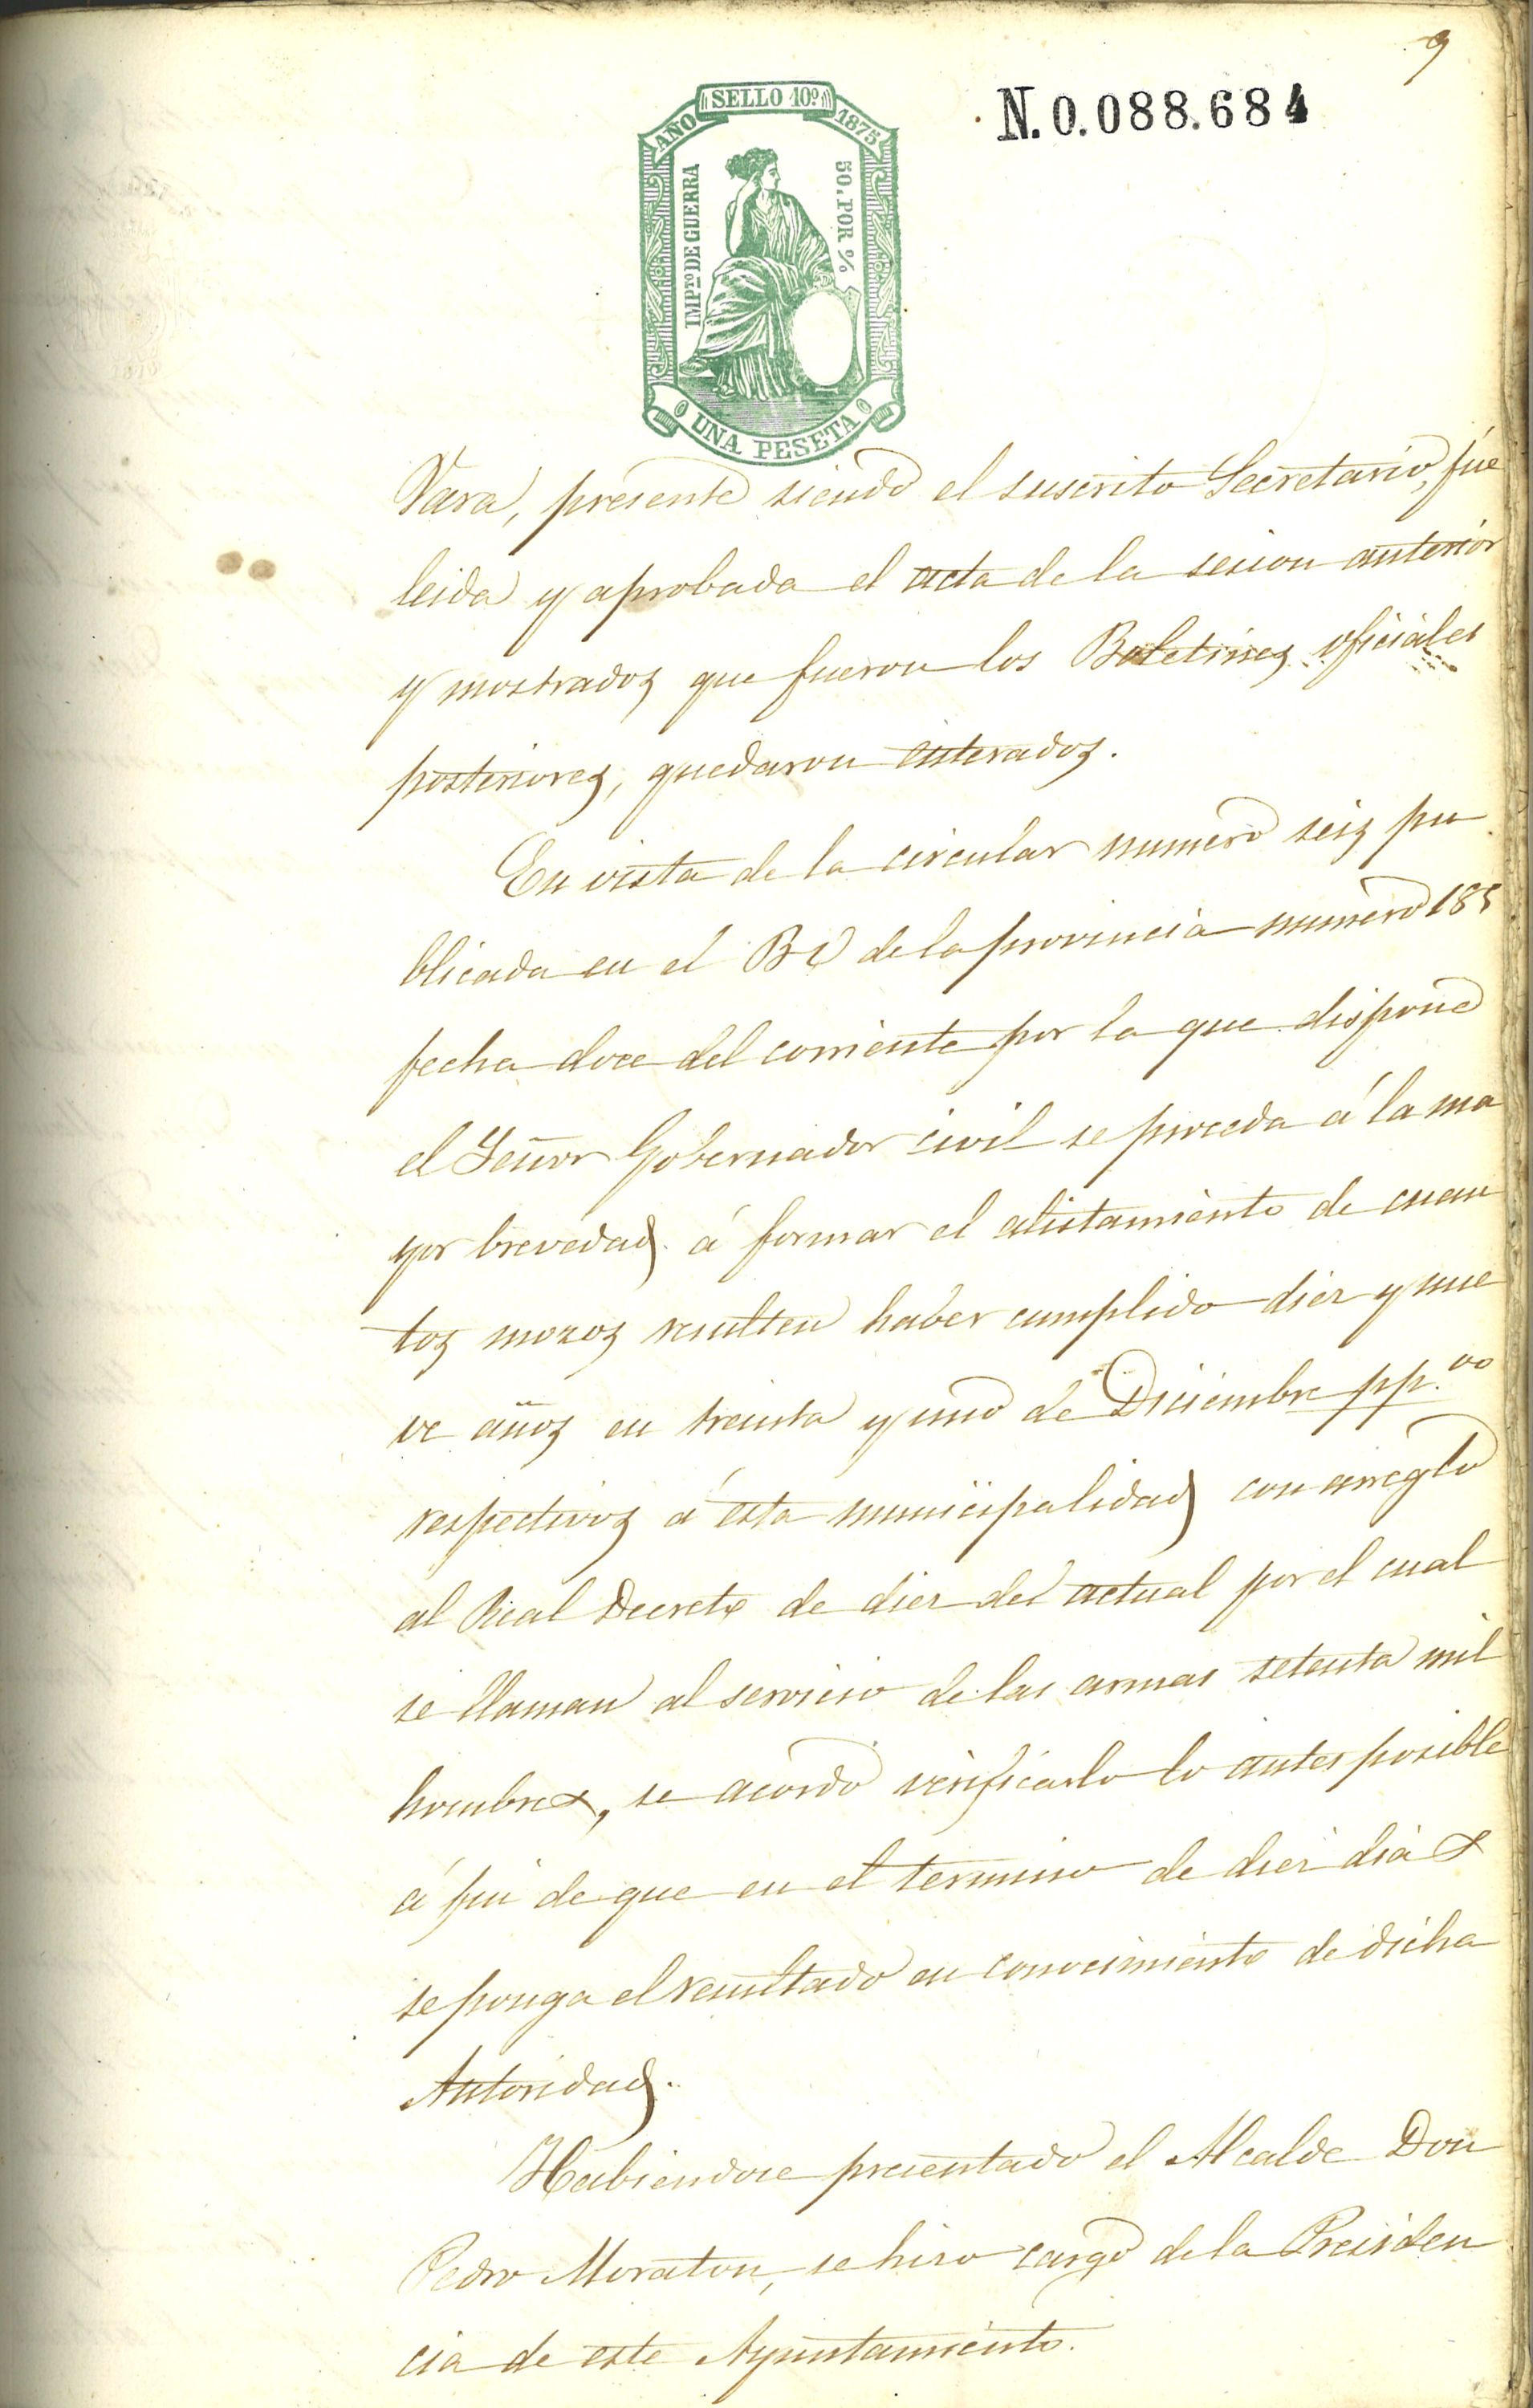 9
N.0.088.684
SELLO 10º
AÑO 1875
IMPTO DE GUERRA
50. POR %
UNA PESETA
Vara, presente siendo el suscrito Secretario, fúe
leida y aprobada el acta de la sesion anterior
y mostrados que fueron los Boletines oficiales
posteriores, quedaron enterados.
En vista de la circular numero seis pu
blicada en el BO de la provincia numero 185
fecha doce del corriente por la que dispone
el Señor Gobernador civil se proceda á la ma
yor brevedad á formar el alistamiento de cuan
tos mozos resulten haber cumplido diez y nue
ve años en treinta y uno de Diciembre pp.do
respectivos á esta municipalidad con arreglo
al Real Decreto de diez del actual por el cual
se llaman al servicio de las armas setenta mil
hombres, se acordó verificarlo lo antes posible
á fin de que en el termino de diez dias
se ponga el resultado en conocimiento de dicha
Autoridad.
Habiendose presentado el Alcalde Don
Pedro Moraton, se hizo cargo de la Presiden
cia de este Ayuntamiento.